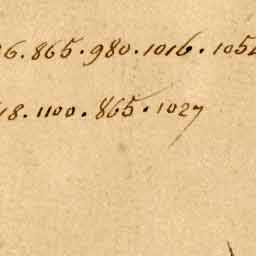 6.865.980.1016.105
18.1100.865.1027